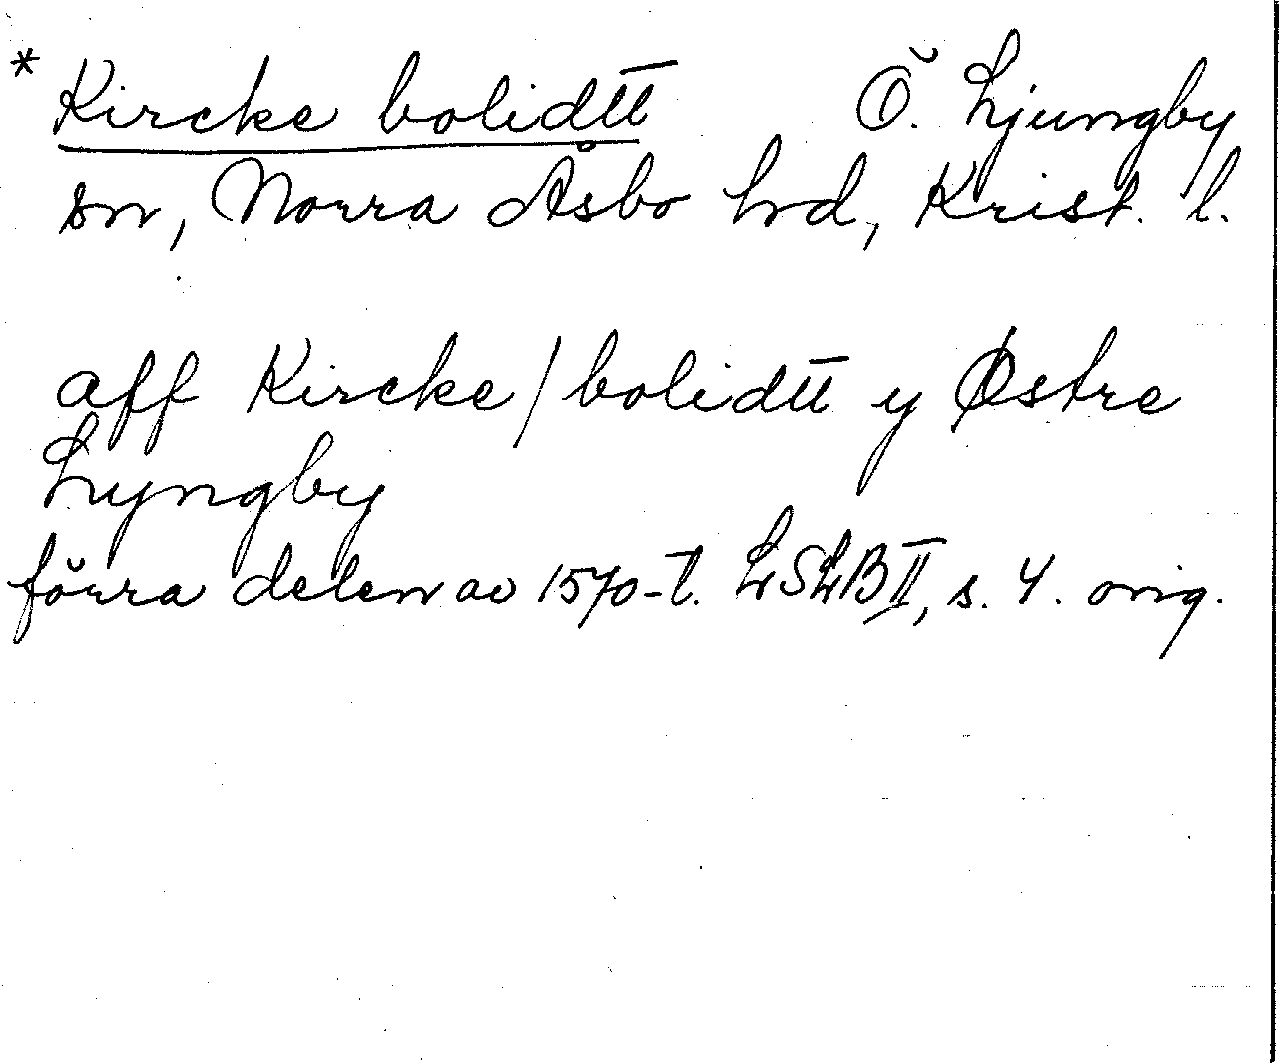 * Kircke bolidtt Ö. Ljungby
sn, Norra Åsbo hd, Krist. l.
aff Kircke/bolidtt y Østre
Lyngby
förra delen av 1570-t. LSLB II, s. 4. orig.